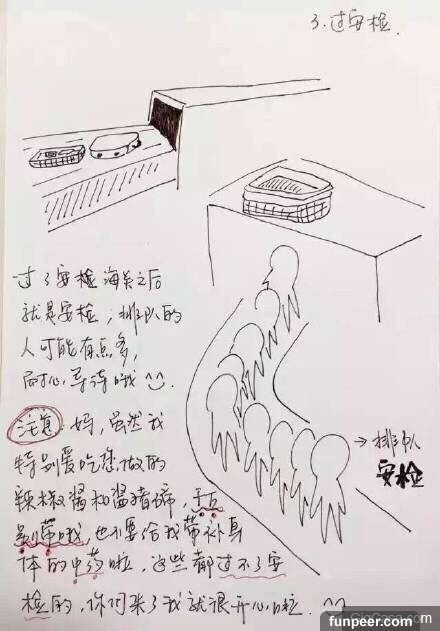 3.过安检.
过了安检海关之后
就是安检,排队的
人可能有点多,
耐心等待哦
→排队
安检
注意:妈,虽然我
特别爱吃您做的
辣椒酱和酱猪蹄,千万
别带哦,也不要给我带补身
体的中药啦,这些都过不了安
检的,你们来了我就很开心啦.
GigCasa.com
funpeer.com